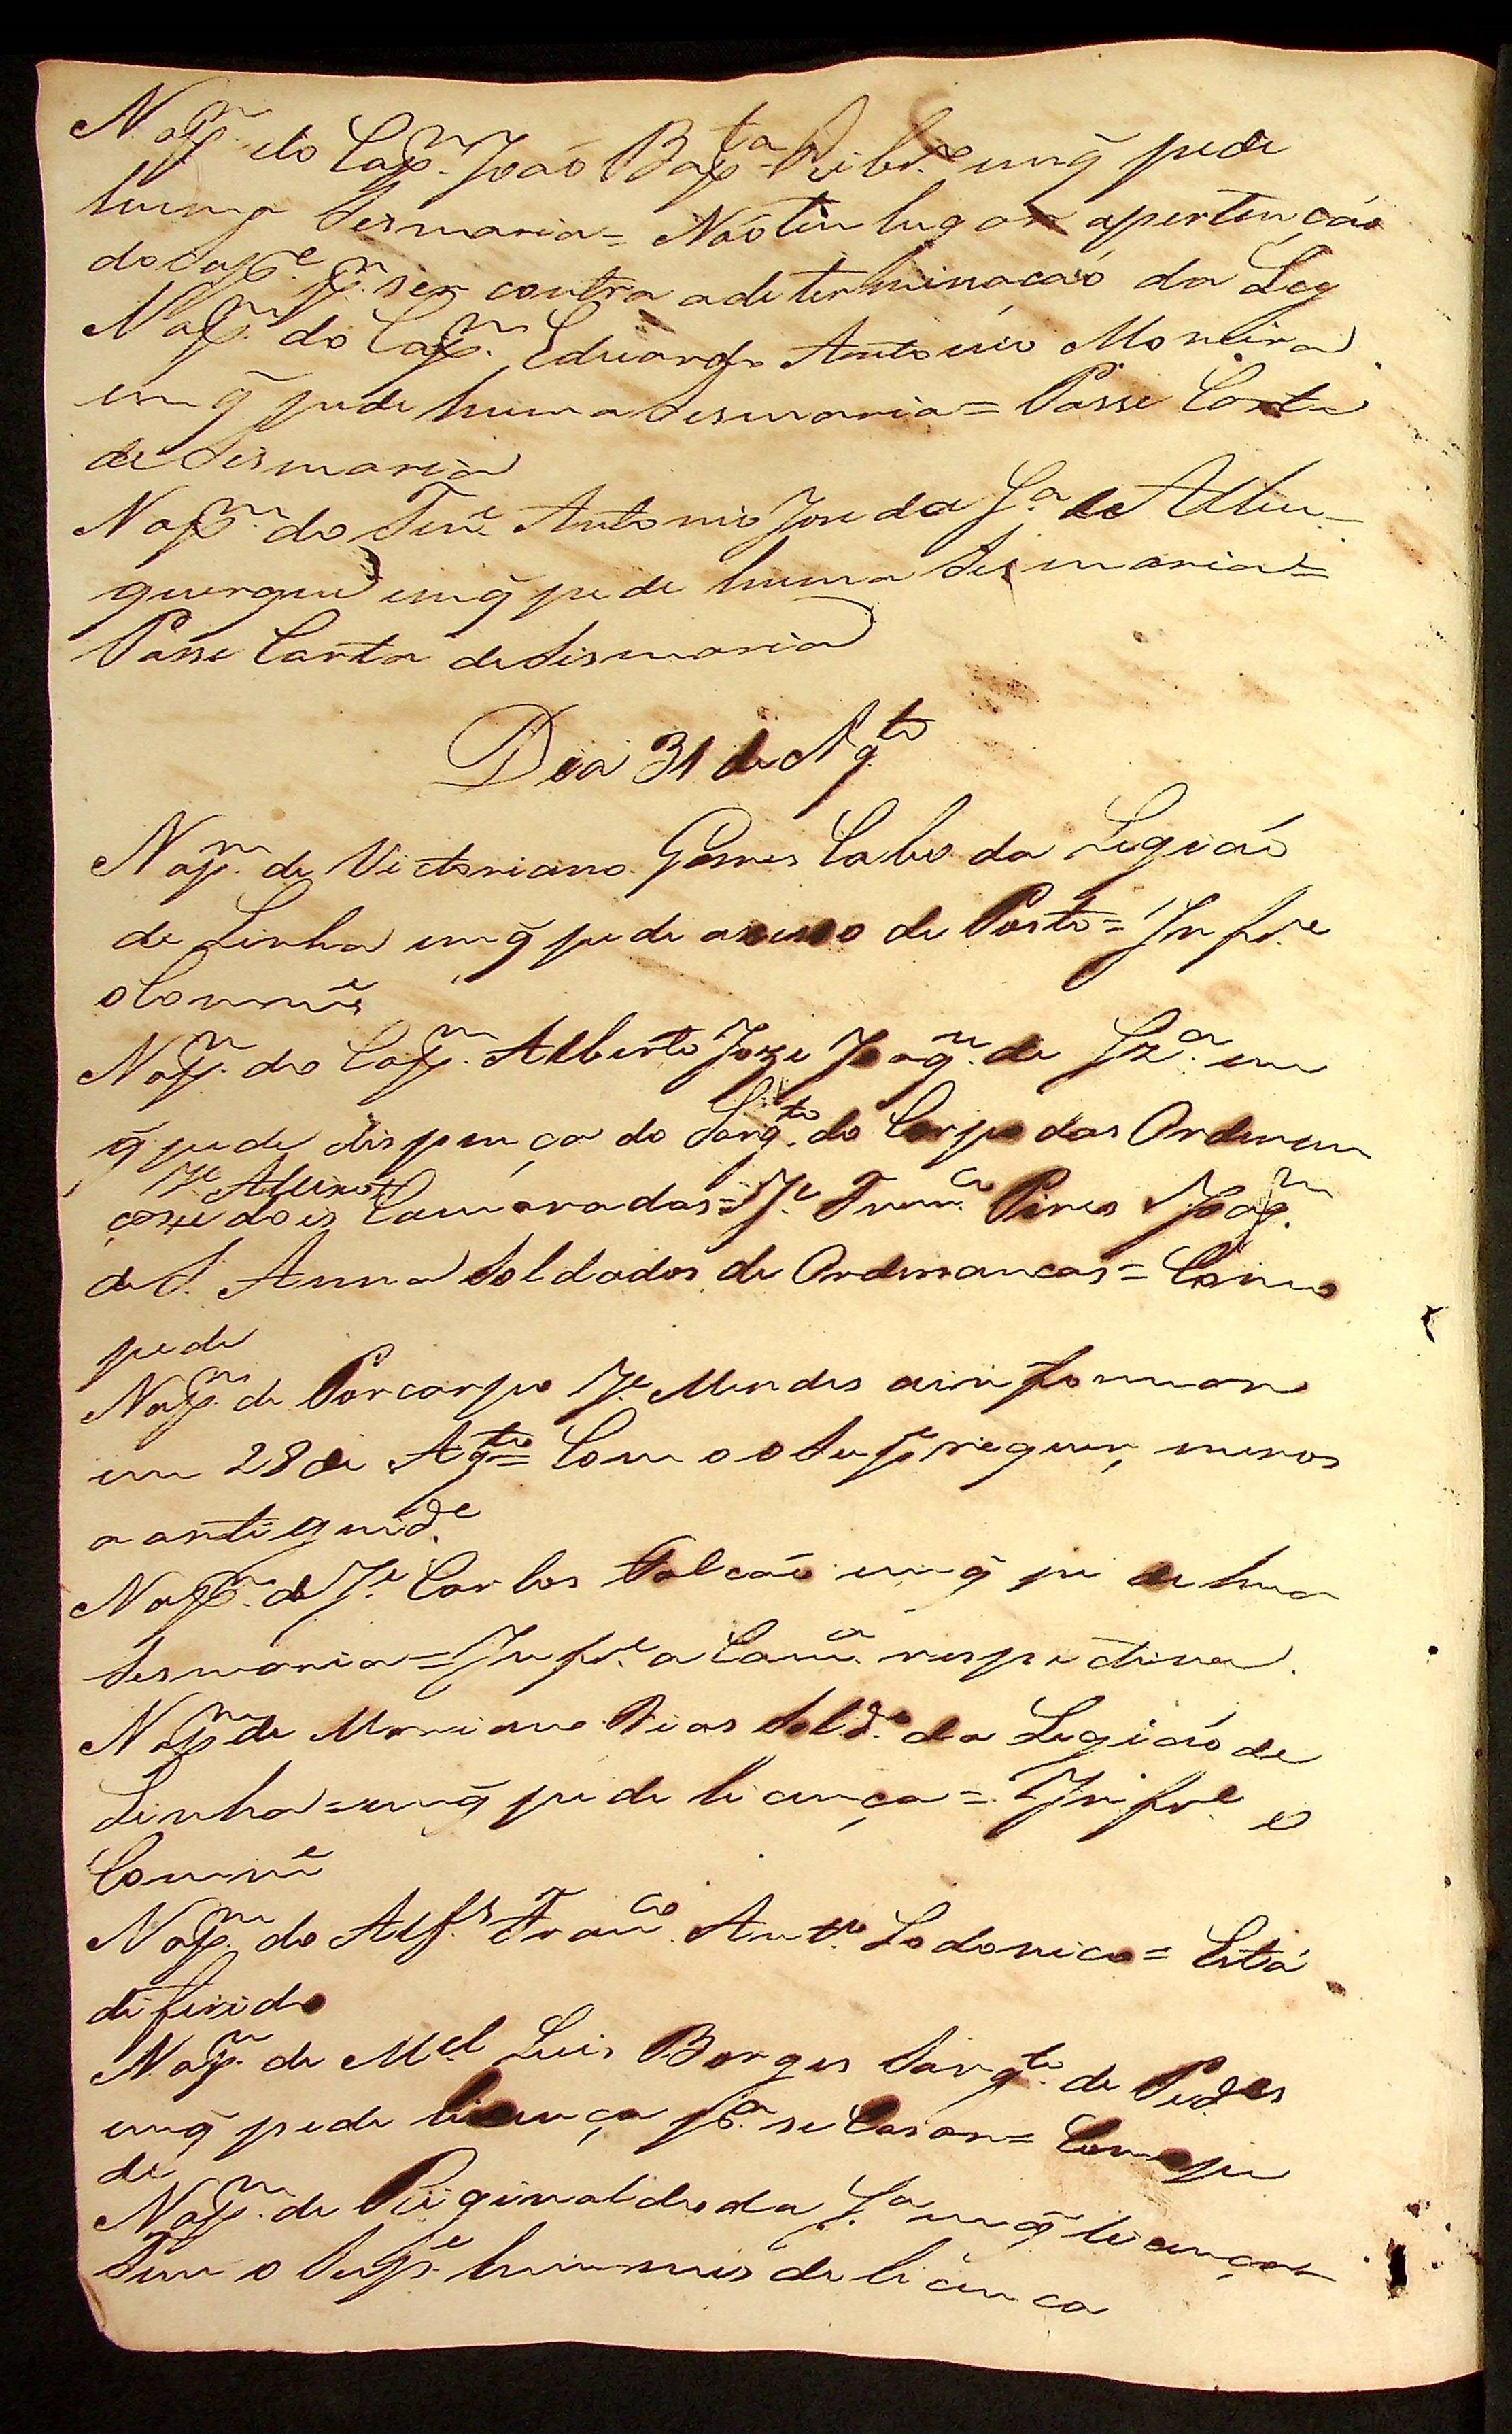 Na p.m do Cap.m João Bap.ta Ribr.o em q̃ pede
huma Sesmaria = Não tem lugar a pertenção
do Sup.e p.r ser contra a determinação da Ley
Na p.m do Cap.m Eduardo Antonio Moreira
em q̃ pede huma Sesmaria = Passe Carta
de Sismaria
Na p.m do Ten.e Antonio Jose da S.a de Albu-
querque em q̃ pede huma Sesmaria =
Passe Carta de Sismaria
Dia 31 de Ag.to
Na p.m de Victoriano Gomes Cabo da Legião
de Linha em q̃ pede acesso de Posto = Infr.e
o Comm.e
Na p.m do Cap.m Alberto Joze Joaq.m de Sz.a em
q̃ pede dispença do Sarg.to do Corpo das Ordenan
J.e Alberto
ças e dois Camaradas = J.e Fran.co Pires e Joaq.m
de S. Anna Soldados de Ordenancas = Como
pede
Na p.m de Porcarpio J.e Mendes a informar
em 28 de Ag.to = Como o Sup.e requer, menos
a antiguid.e
Na p.m de J.e Carlos Falcaõ em q̃ pede hua
Sesmaria = Infr.e a Cam.a respectiva.
Na p.m de Mariano Dias Sold.o da Legião de
Linha = em q̃ pede licença = Infr.e o
Comm.e
Na p.m do Alf.s Fran.co Ant.o Lodovico = Está
diferido
Na p.m de M.el Luis Borges Sarg.to de Ped.es
em q̃ pede licença p.a se Casar = Como pe
de
Na p.m de Riginaldo da S.a em q̃ licença
Tem o Sup.e hum mes de licenca